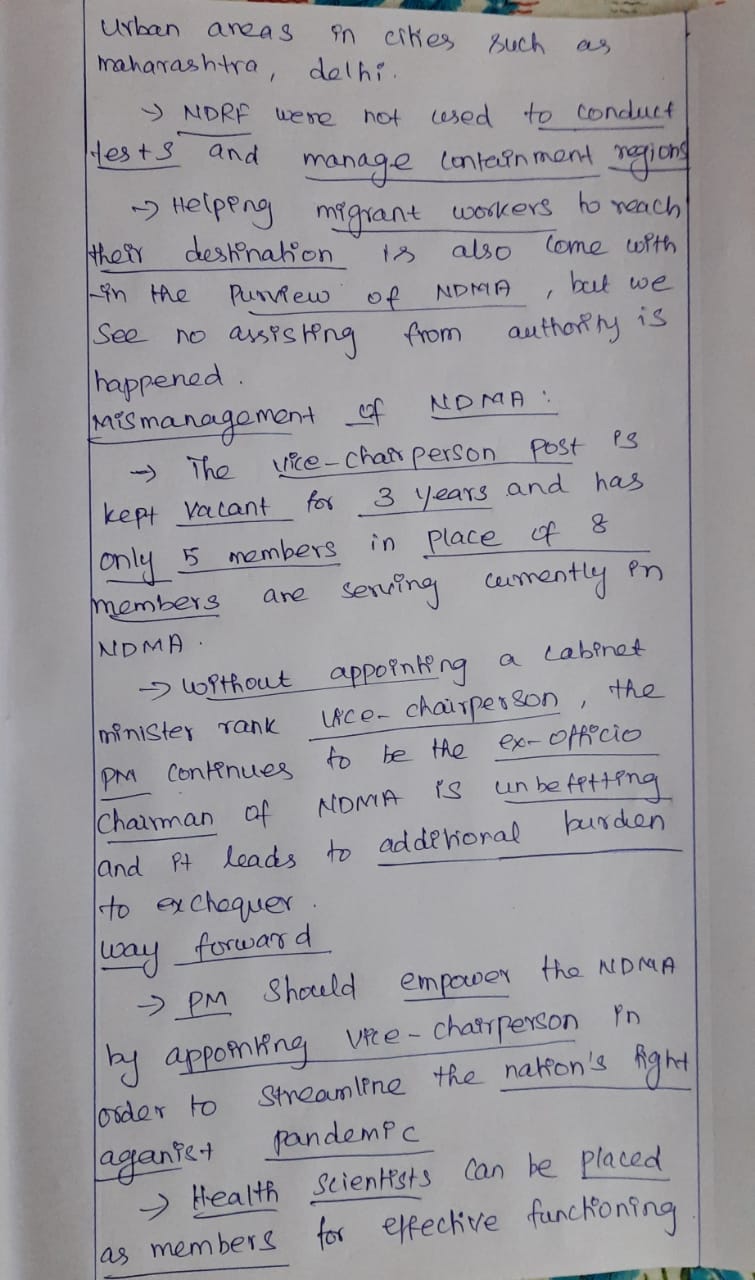 urban areas in cities such as
maharashtra, delhi.
→ NDRF were not used to conduct
tests and manage containment regions
→ Helping migrant workers to reach
their destination is also come with
-in the Purview of NDMA, but we
See no assisting from authority is
happened.
Mismanagement of NDMA:
→ The vice-chairperson post is
kept vacant for 3 years and has
only 5 members in place of 8
members are serving currently in
NDMA.
→ without appointing a cabinet
minister rank vice-chairperson, the
PM continues to be the ex-officio
Chairman of NDMA is unbefitting
and it leads to additional burden
to exchequer.
way forward
→ PM Should empower the NDMA
by appointing vice-chairperson in
order to streamline the nation's fight
aganist pandemic
→ Health Scientists can be placed
as members for effective functioning.